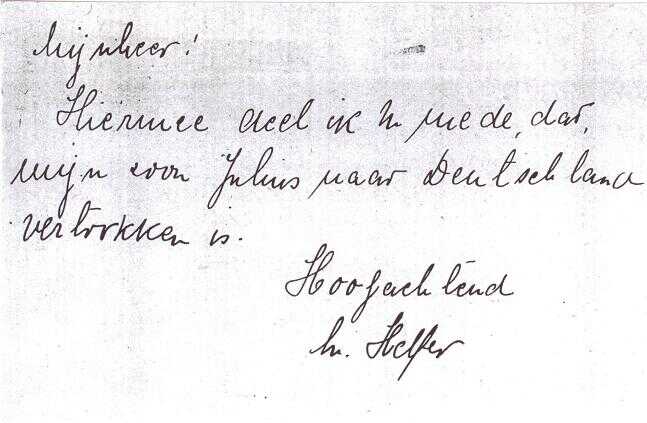 Mijnheer!
Hiermee deel ik U mede, dat,
mijn zoon Julius naar Deutschland
vertrokken is.
Hoogachtend
M. Helfer